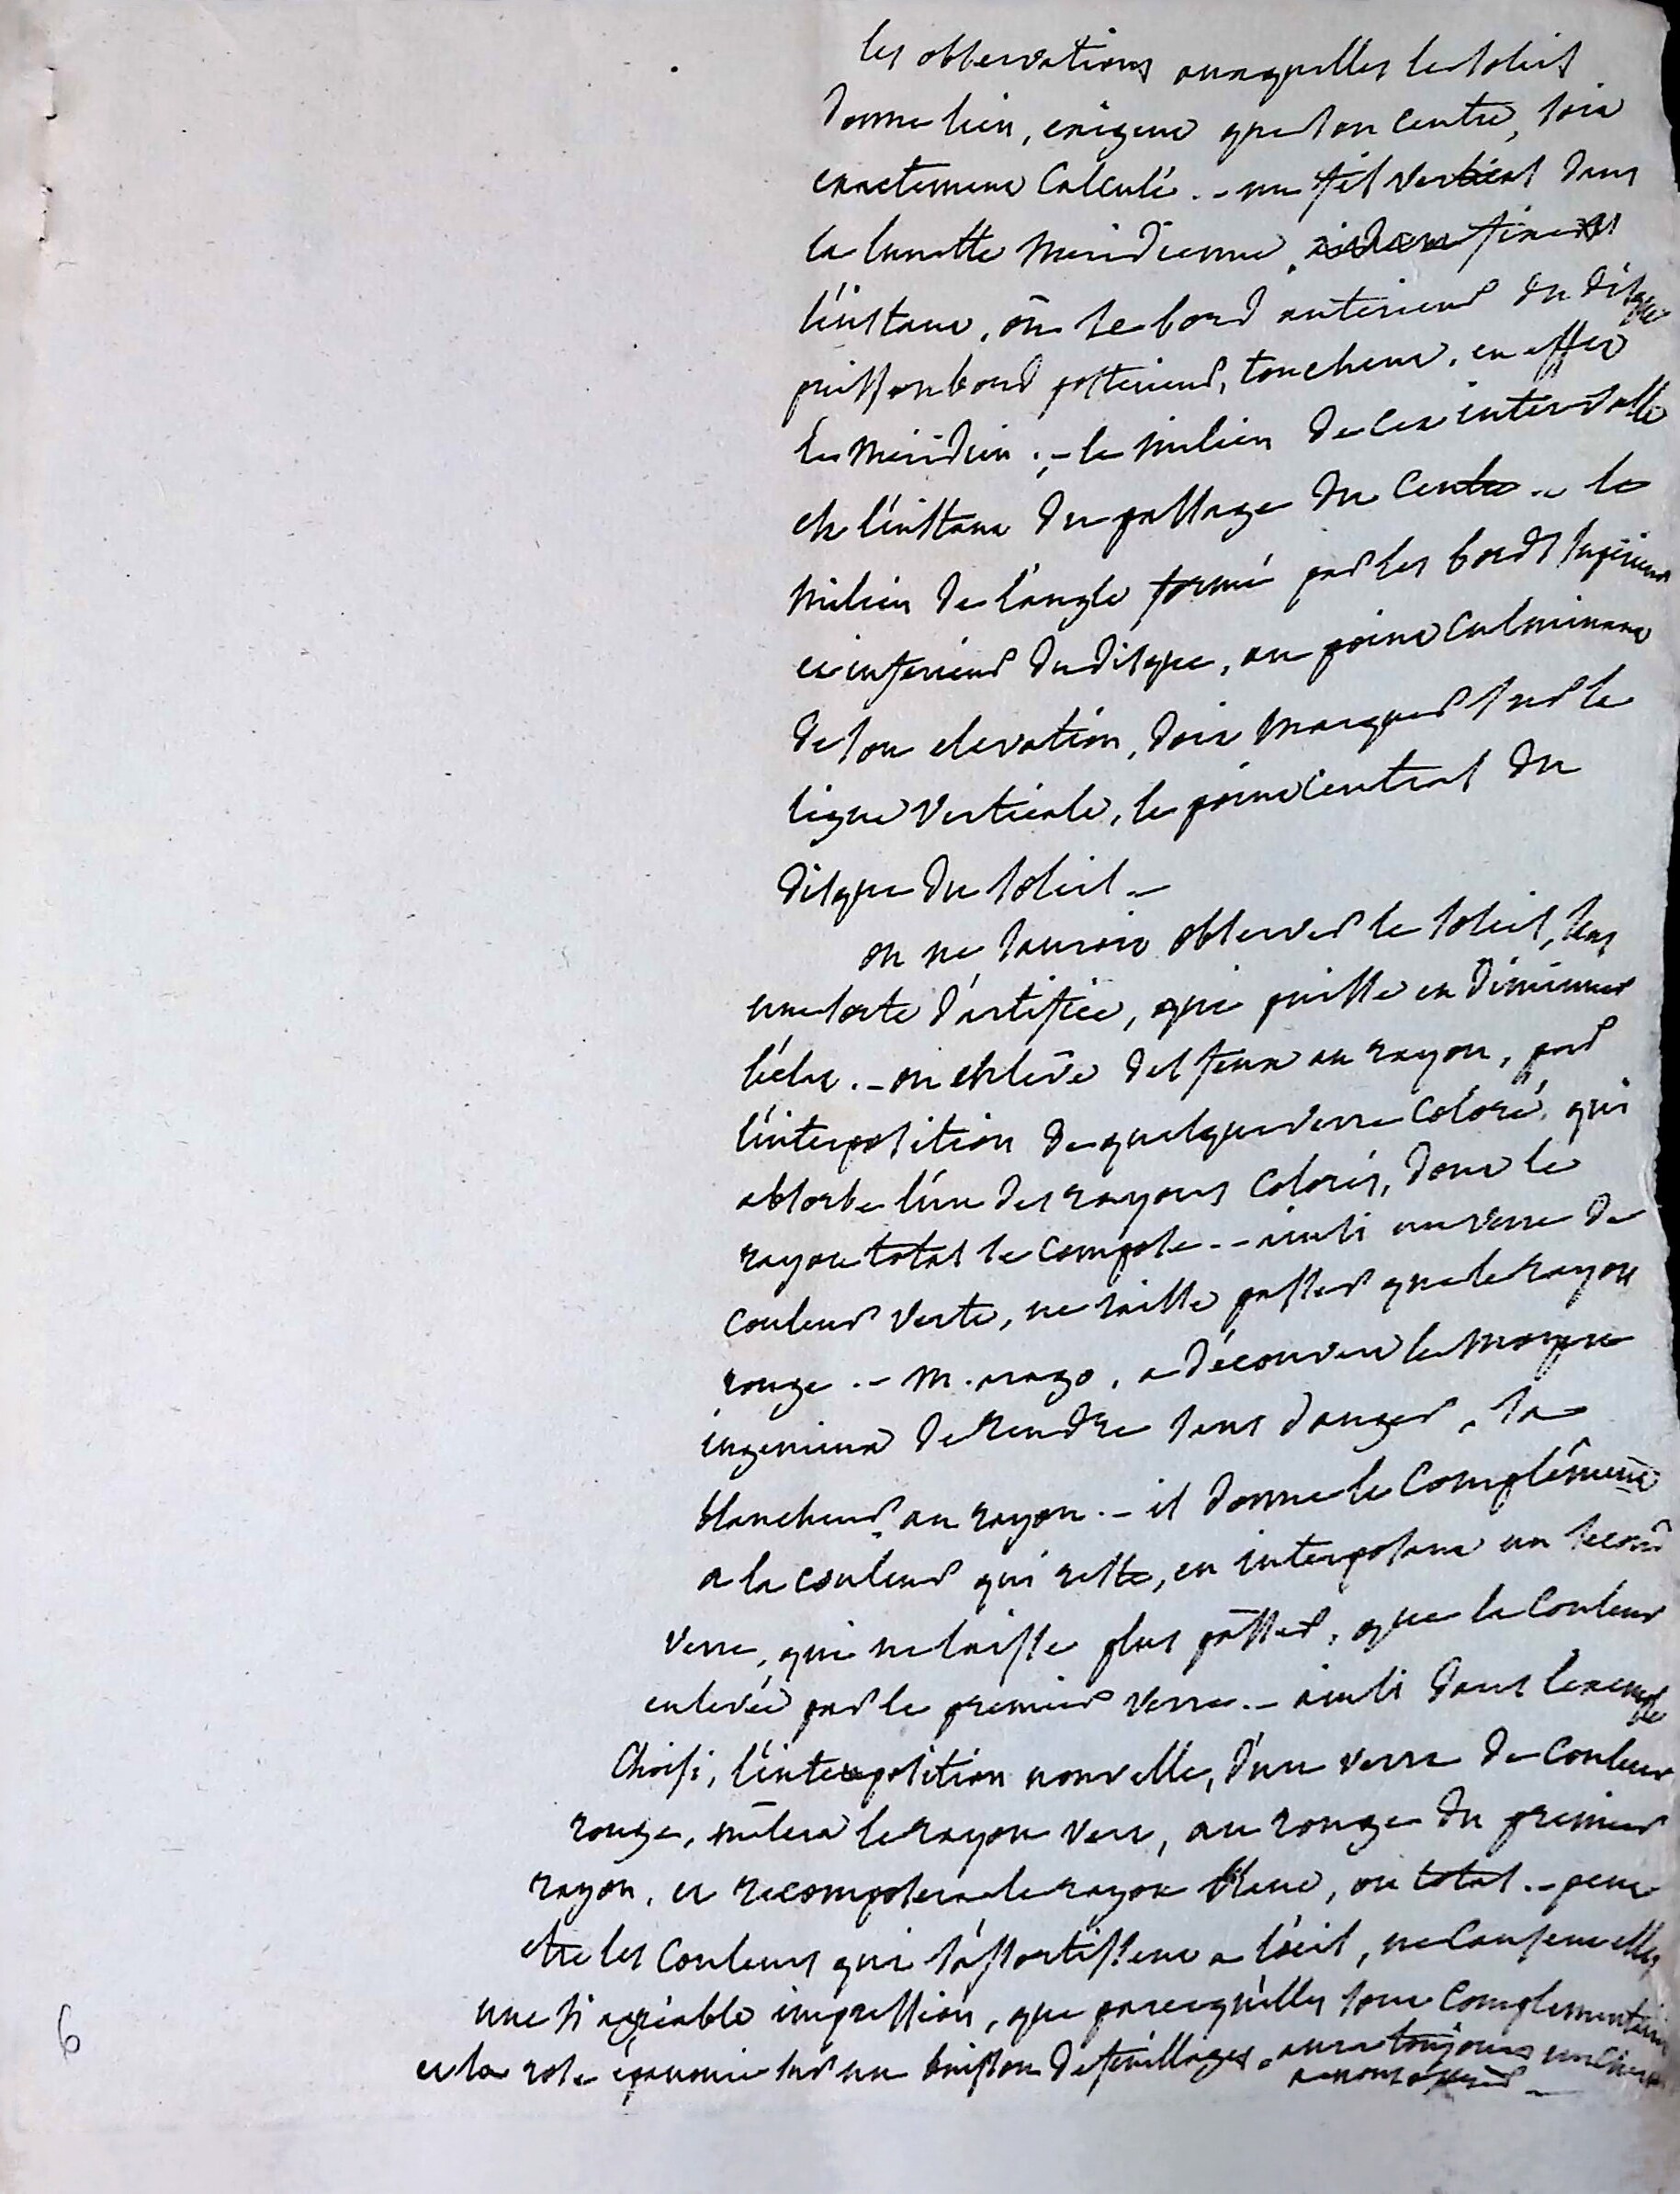 les observations auxquelles le soleil
donne lieu, exigent que son centre, soit
exactement calculé. - un fil vertical dans
la lunette meridienne, fixe
l'instant, où le bord anterieur du disque
puis son bord posterieur, touchent, en effet
le méridien ; - le milieu de cet intervalle
est l'instant du passage du centre .. le
milieu de l'angle formé par les bords superieur
et inferieur du disque, au point culminant
de son elevation, doit marquer sur le
ligne verticale, le point central du
disque du soleil -
on ne sauroit observer le soleil, sans
une sorte d'artifice, qui puisse en diminuer
l'éclat. - on enlève des feux au rayon, par
l'interposition de quelque verre coloré, qui
absorbe l'un des rayons colorés, dont le
rayon total se compose - - ainsi un verre de
couleur verte, ne laisse passer que le rayon
rouge. - M. arago, a découvert le moyen
ingenieux de rendre sans danger, la
blancheur, au rayon. - il donne le complément
a la couleur qui reste, en interposant un second
verre, qui ne laisse plus passer, que la couleur
enlevée par le premier verre. - ainsi dans l'exemple
choisi, l'interposition nouvelle, d'un verre de couleur
rouge, mêlera le rayon vert, au rouge du premier
rayon, et recomposera le rayon blanc, ou total. - peut
etre les couleurs qui s'assortissent a l'oeil, ne causent elles
une si agréable impression, que parcequ'elles sont complementaires
et la rose epanouie sur un buisson de feuillages, aura toujours un
a nous
6